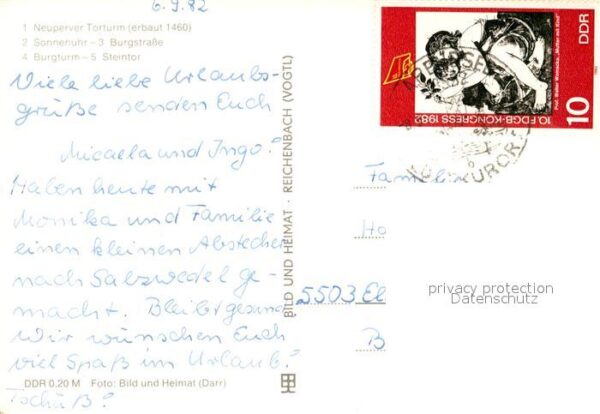 6.9.82
1 Neuperver Torturm (erbaut 1460)
2 Sonnenuhr – 3 Burgstraße
4 Burgturm – 5 Steintor
Viele liebe Urlaubs-
grüße senden Euch
Micaela und Ingo!
Haben heute mit
Monika und Familie
einen kleinen Abstecher
nach Salzwedel ge-
macht. Bleibt gesund
Wir wünschen Euch
viel Spaß im Urlaub!
Tschüß!
DDR 0,20 M Foto: Bild und Heimat (Darr)
BILD UND HEIMAT · REICHENBACH (VOGTL)
10. FDGB-KONGRESS 1982
Prof. Walter Womacka, „Mutter mit Kind“
DDR
10
KURORT
Familie
Ho
5503 El
B
privacy protection
Datenschutz